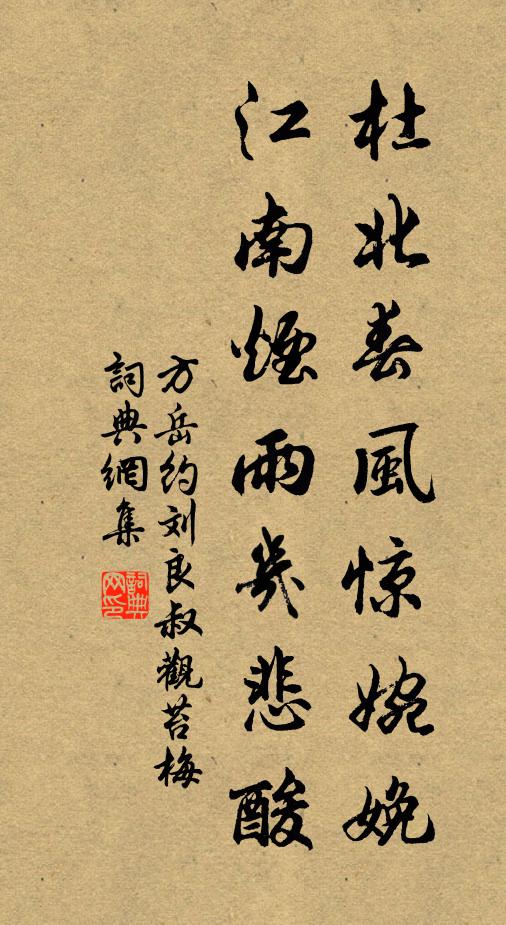 杜北春風惊婉娩
江南煙雨幾悲酸
方岳约刘良叔觀苔梅
詞典網集
詞典网印